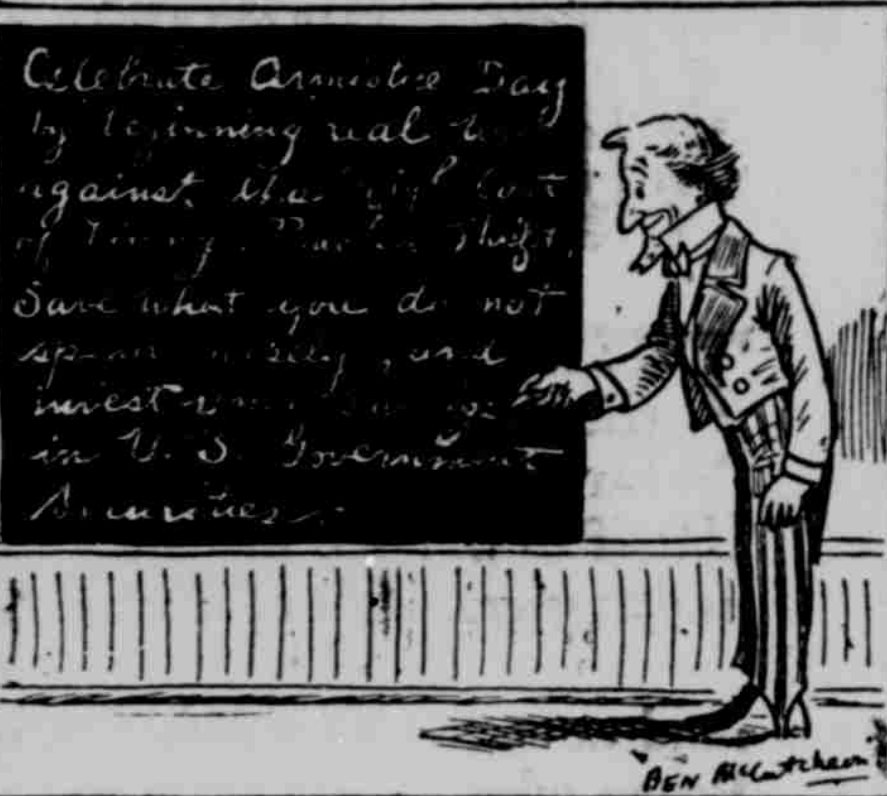 Celebrate Armistice Day
by beginning real
against the high cost
of living. Practice Thrift.
Save what you do not
spend wisely, and
invest your savings
in U. S. Government
Securities.
BEN McCutcheon